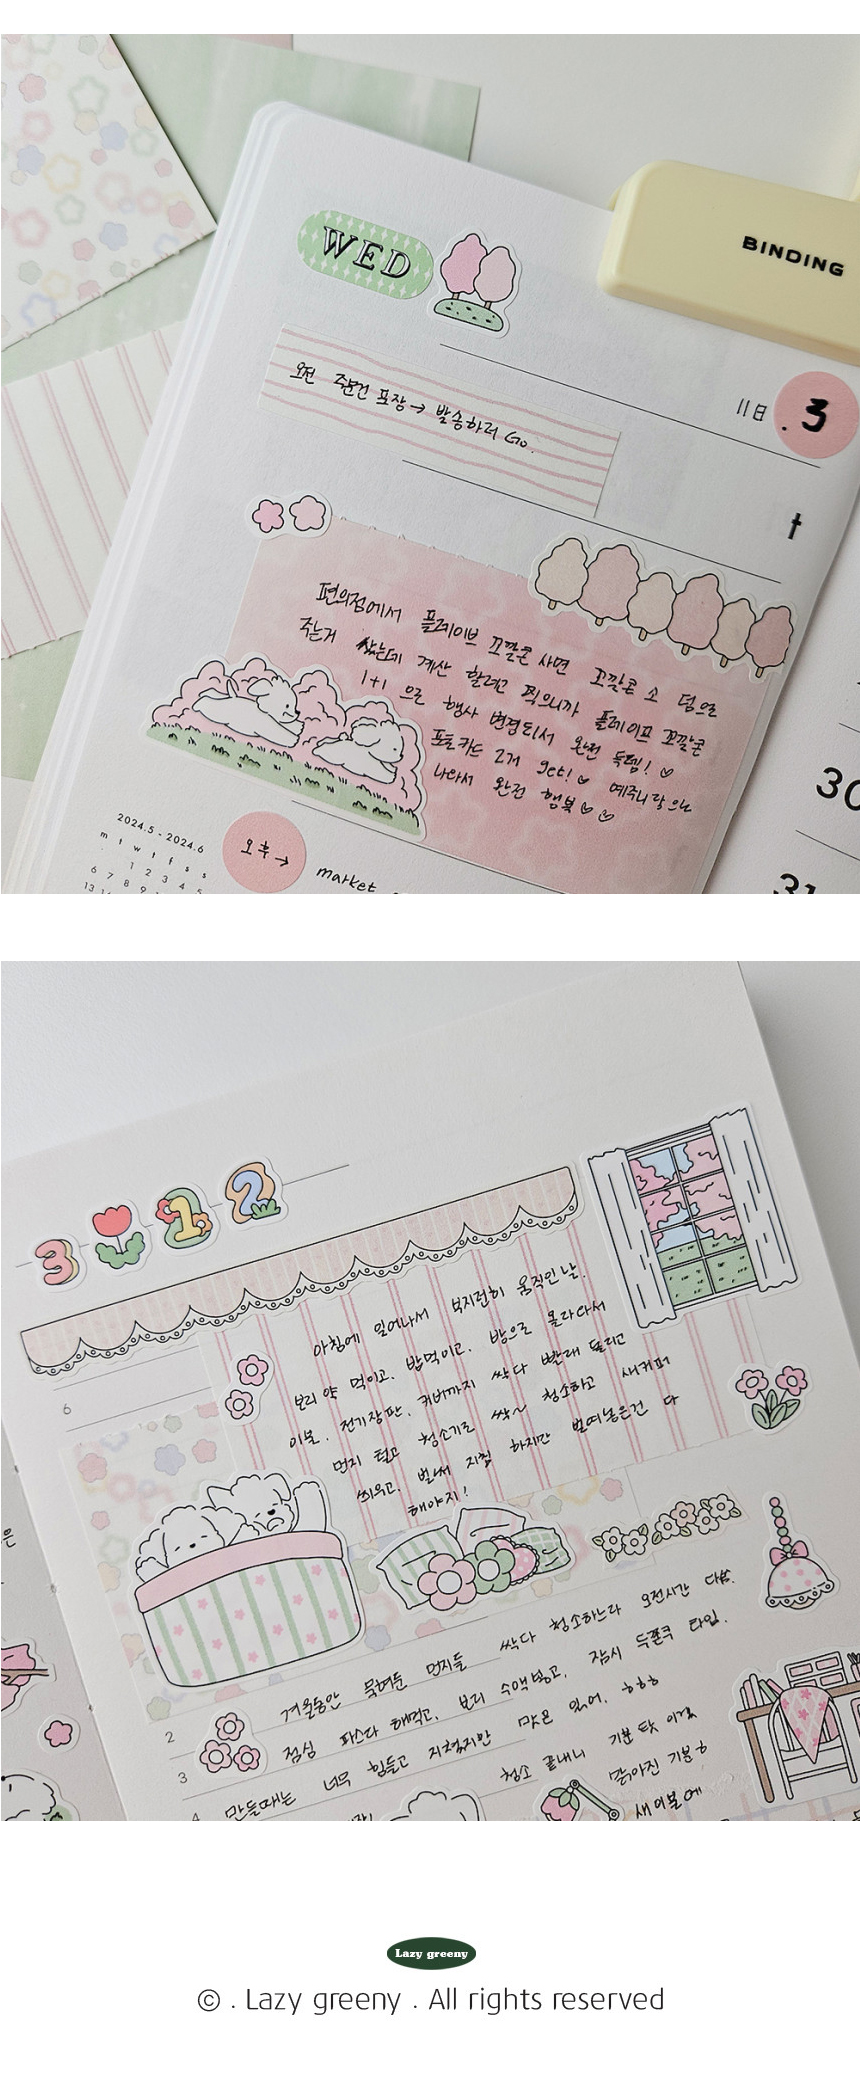 WED
BINDING
11日
.3
오전 주문건 포장→ 발송하러 Go.
t
편의점에서 플레이브 꼬깔콘 사면 꼬깔콘 소 덤으로
주는거 샀는데 계산 할려고 찍으니까 플레이브 꼬깔콘
1+1 으로 행사 변경되서 완전 득템! ♡
포토카드 2개 get! ♡ 예쥬니랑 으노
나와서 완전 행복 ♡ ♡
30
31
2024.5 - 2024.6
m t w t f s s
1 2 3 4 5
6 7 8 9
13 14
오후→
market
3 1 2
아침에 일어나서 부지런히 움직인 날.
보리 약 먹이고. 밥먹이고. 방으로 올라다서
이불. 전기장판. 커버까지 싹다 빨래 돌리고
먼지 털고 청소기로 싹~ 청소하고 새커퍼
씌우고. 벌써 지침 하지만 벌여놓은건 다
해야지!
6
겨울동안 묵혀둔 먼지들 싹다 청소하느라 오전시간 다씀.
2
점심 파스타 해먹고. 보리 수액넣고. 잠시 두쫀쿠 타임.
3
만들때는 너무 힘들고 지쳤지만 맛은 있어. ㅎㅎㅎ
4
청소 끝내니 기분
맑아진 기분ㅎ
새 이불에
Lazy greeny
© . Lazy greeny . All rights reserved